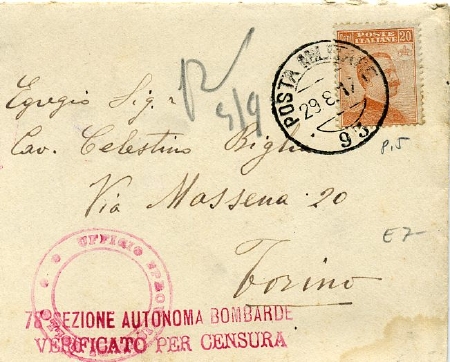 POSTE ITALIANE 20
POSTA MILITARE
29.8.17
93
R
4/9
Egregio Sig. r
Cav. Celestino
Via Massena 20
Torino
P,5
E 7-
UFFICIO
78 SEZIONE AUTONOMA BOMBARDE
VERIFICATO PER CENSURA